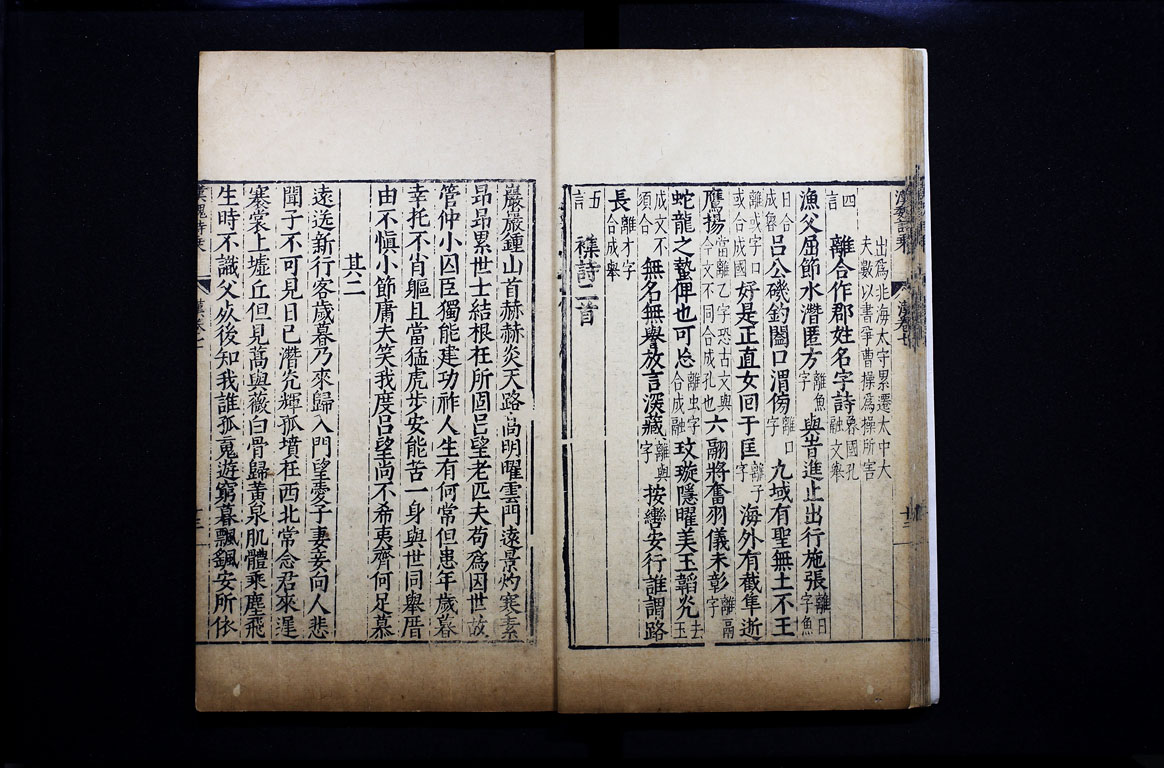 漢魏詩乘 漢卷七 十二
出為北海太守累遷太中大
夫數以書爭曹操為操所害
四言 離合作郡姓名字詩 魯國孔融文舉
漁父屈節水潛匿方 離魚字 與旹進止出行施張 離日字魚
日合成魯 呂公磯釣闔口渭傍 離口字 九域有聖無土不王
離或字口或合成國 好是正直女回于匡 離子字 海外有截隼逝
鷹揚 當離乙字恐古文與今文不同合成孔也 六翮將奮羽儀未彰 離鬲字
蛇龍之蟄俾也可忩 離虫字合成融 玟璇隱曜美玉韜光 去玉
成文不須合 無名無譽放言深藏 離與字 按轡安行誰謂路
長 離才字合成舉
五言 襍詩二首
巖巖鍾山首赫赫炎天路高明曜雲門遠景灼寒素
昂昂累世士結根在所固呂望老匹夫苟為因世故
管仲小囚臣獨能建功祚人生有何常但患年歲暮
幸托不肖軀且當猛虎步安能苦一身與世同舉厝
由不慎小節庸夫笑我度呂望尚不希夷齊何足慕
其二
遠送新行客歲暮乃來歸入門望愛子妻妾向人悲
聞子不可見日已潛光輝孤墳在西北常念君來遲
褰裳上墟丘但見蒿與薇白骨歸黃泉肌體乘塵飛
生時不識父死後知我誰孤䰟遊窮暮飄颻安所依
漢魏詩乘 漢卷七 十三